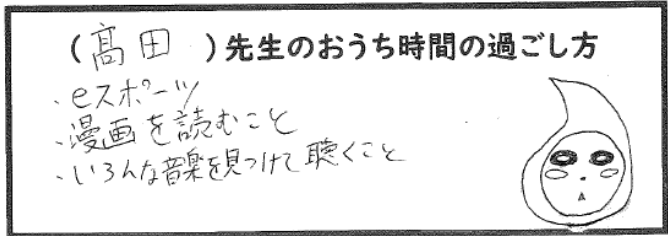 (髙田)先生のおうち時間の過ごし方
・eスポーツ
・漫画を読むこと
・いろんな音楽を見つけて聴くこと